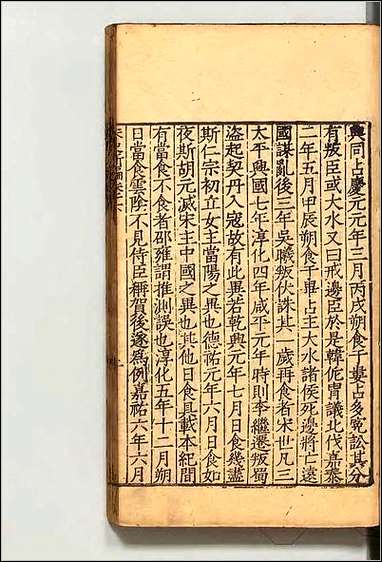 與同占慶元元年三月丙戌朔食于婁占多冤訟其分
有叛臣或大水又曰戒邊臣於是韓侂胄議北伐嘉泰
二年五月甲辰朔食于畢占主大水諸侯死邊將亡遠
國謀亂後三年吳曦叛伏誅其一歲再食者宋世凡三
太平興國七年淳化四年咸平元年時則李繼遷叛蜀
盜起契丹入寇故有此異若乾興元年七月日食幾盡
斯仁宗初立女主當陽之異也德祐元年六月日食如
夜斯胡元滅宋主中國之異也其他日食具載本紀間
有當食不食者邵雍謂推測誤也淳化五年十二月朔
日當食雲陰不見侍臣稱賀後遂為例嘉祐六年六月